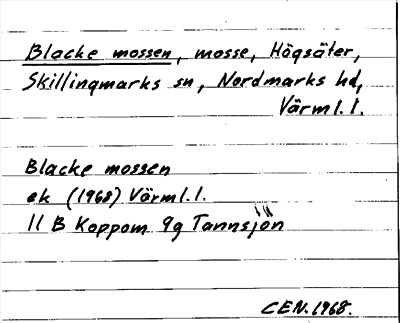 Blacke mossen, mosse, Högsäter,
Skillingmarks sn, Nordmarks hd,
Värml. l.
Blacke mossen
ek (1968) Värml. l.
11 B Koppom 9g Tannsjön
CEN. 1968.